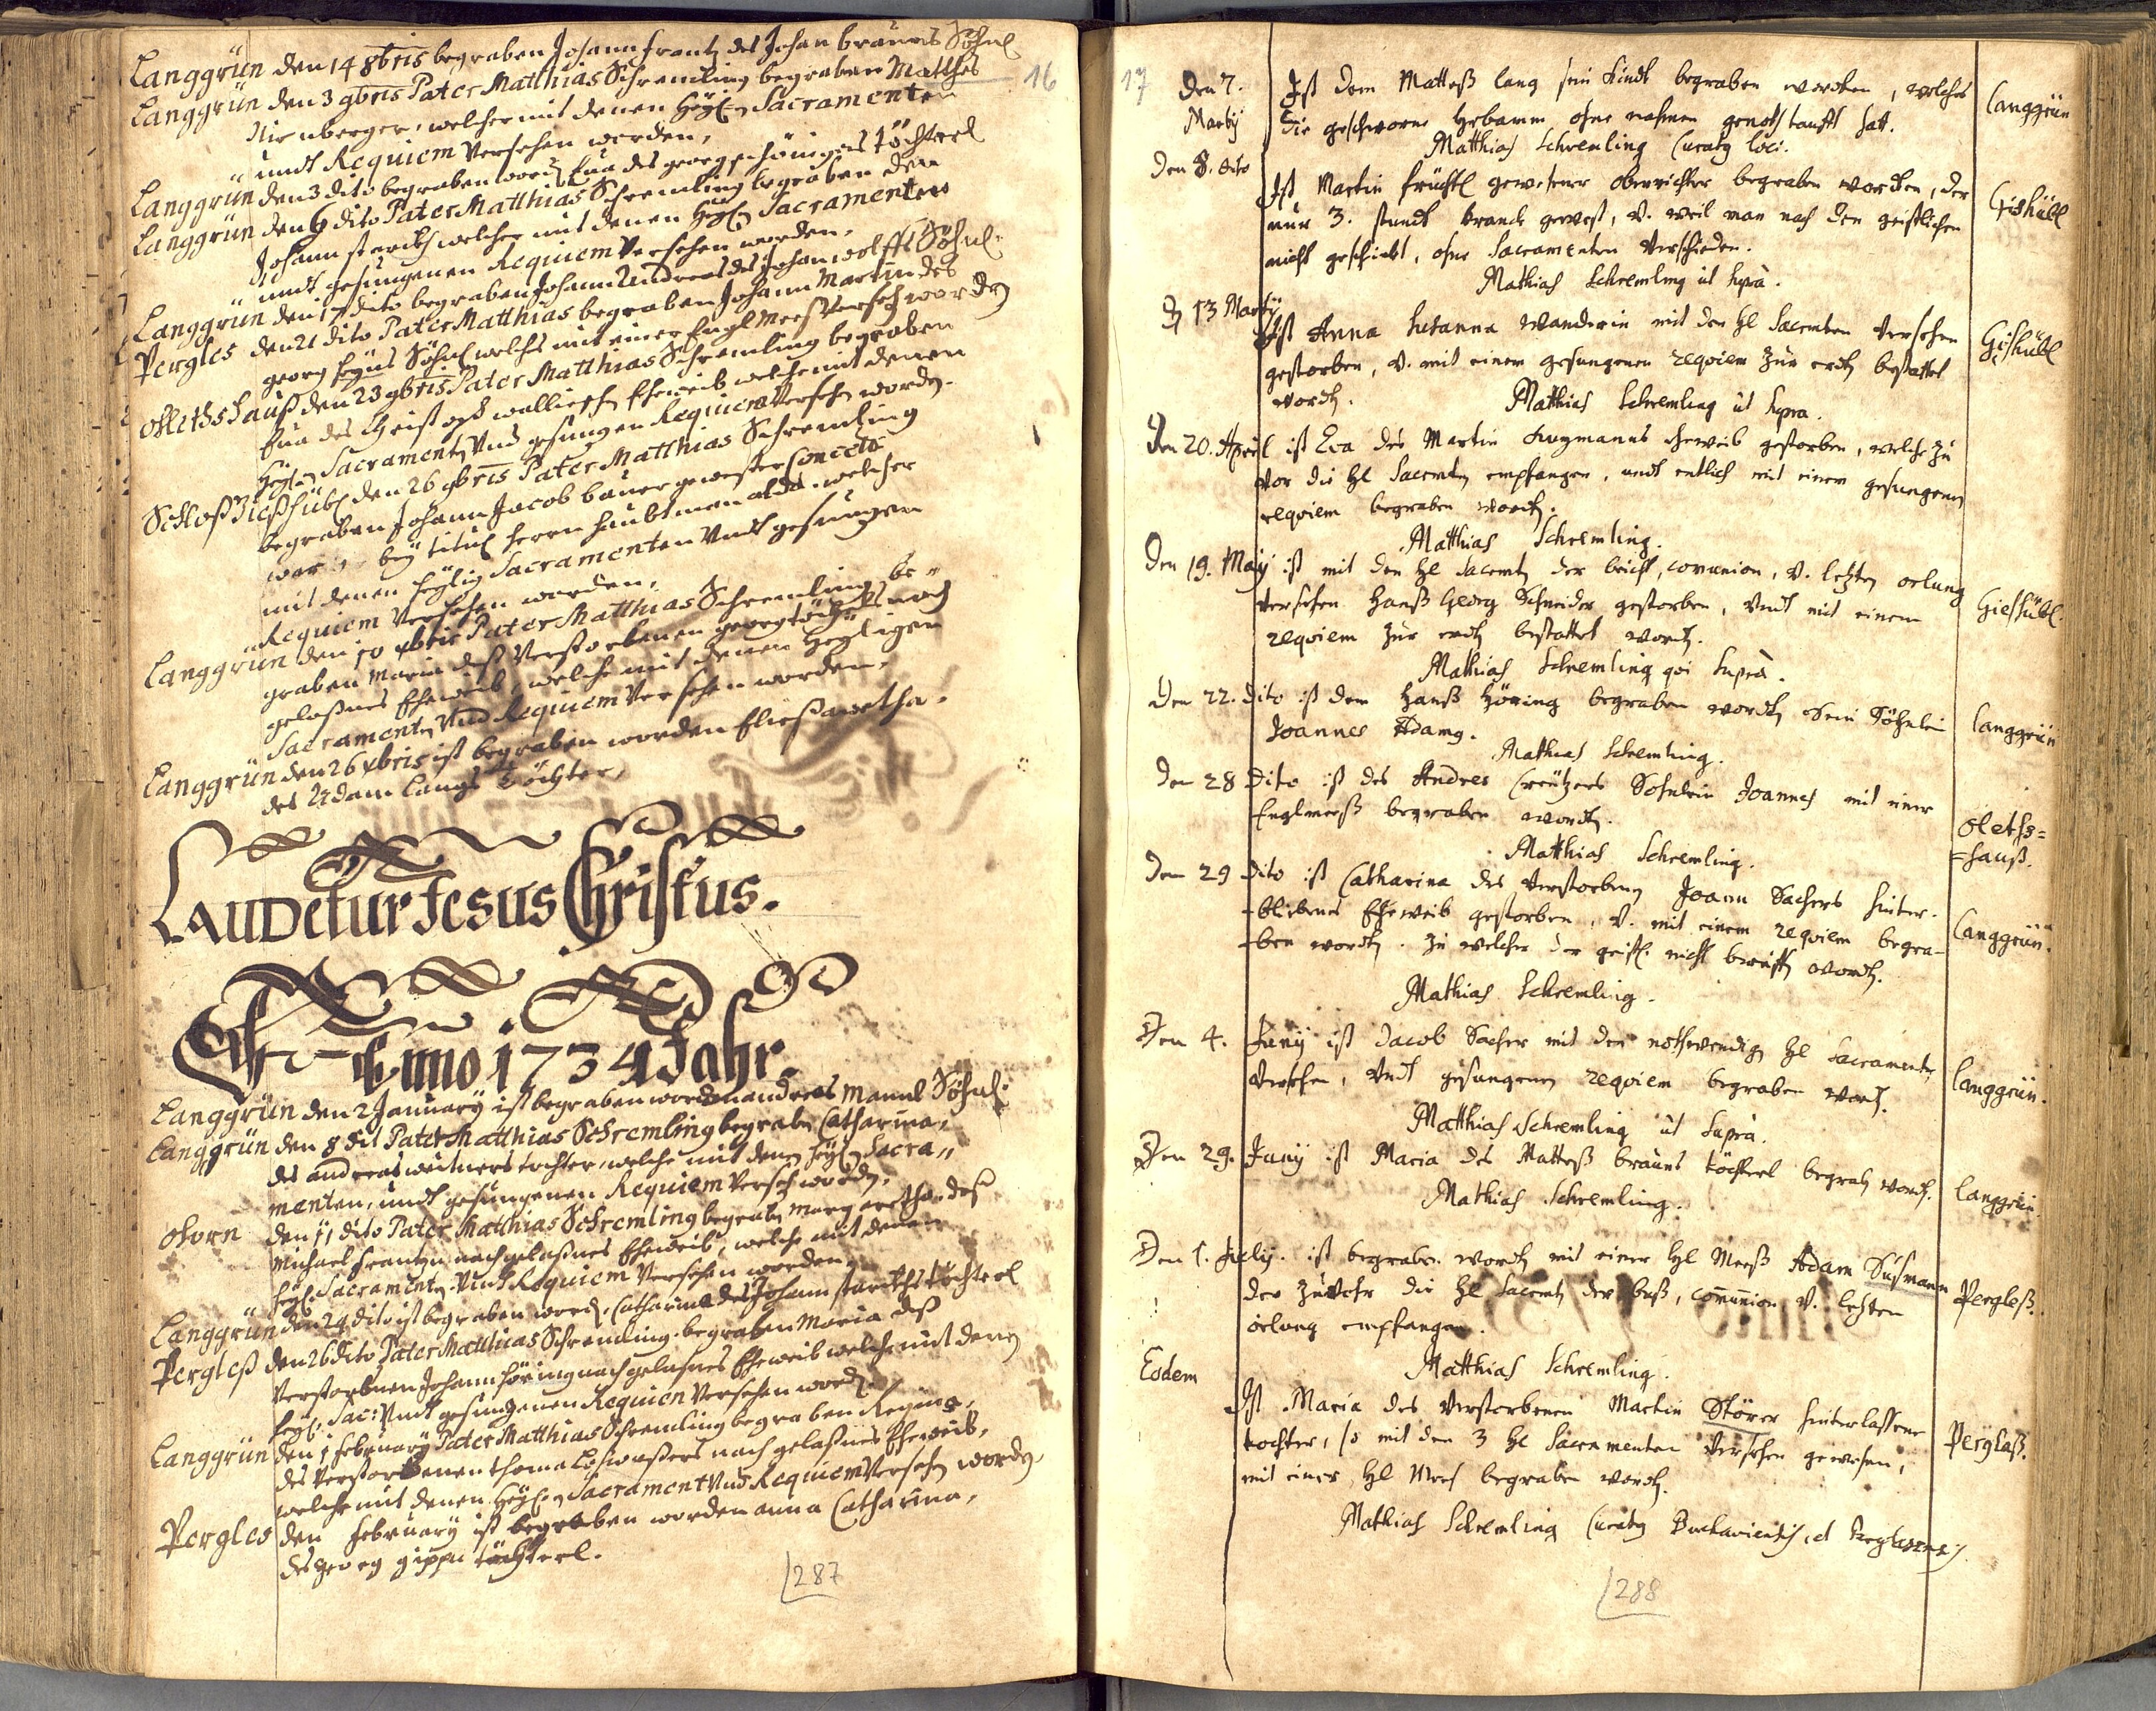 16
Langgrün den 14 8bris begraben Johann Frantz des Johan brauns Söhnl
Langgrün den 3 9bris Pater Matthias Schremling begraben Matthes
Nirnberger, welcher mit denen heyl: Sacramenten
undt Requiem Versehen worden,
Langgrün den 3 dito begraben word Eva des georg Töchterl
Langgrün den 6 dito Pater Matthias Schremling begraben den
Johann welcher mit denen heyl: Sacramenten
undt gesungenen Requiem Versehen worden.
Langgrün den 17 dito begraben Johann Andreas des Johan wolffs Söhnl.
Pergles den 21 dito Pater Matthias begraben Johann Martin des
georg Söhnl welches mit einer Engl Mess Verseh worden
olethshauß den 23 9bris Pater Matthias Schremling begraben
Eva des Christoph Eheweib welche mit denen
heyl: Sacramenten Und gesungen Requiem Versehn worden.
Schloß Gießhübl den 26 9bris Pater Matthias Schremling
begraben Johann Jacob bauer gewester
war bey titul herrn haubtman alda welcher
mit denen heylig Sacramenten Undt gesungen
Requiem Versehen worden.
Langgrün den 10 xbris Pater Matthias Schremling be„
graben Maria deß Verstorbenen georg nach
gelaßnes Eheweib, welche mit denen heyligen
Sacramenten Und Requiem Versehen worden,
Langgrün den 26 xbris ist begraben worden Eliesawetha.
des Adam Langs Töchter,
Laudetur Jesus Christus.
Anno 1734 Jahr.
Langgrün den 2 January ist begraben worden andreas Mannl Söhnl:
Langgrün den 8 dit Pater Matthias Schremling begraben Catharina,
des andreas weitners tochter, welche mit denen heyl: Sacra„
menten, undt gesungenen Requiem Verseh worden.
ohorn den 11 dito Pater Matthias Schremling begraben margaretha deß
Michael Frantzn nachgelaßnes Eheweib, welche mit denen
heyl: Sacramenten Undt Requiem Versehen worden.
Langgrün den 24 dito ist begraben word. Catharina des Johann Töchterl
Pergleß den 26 dito Pater Matthias Schremling begraben Maria deß
Verstorbnen Johann Höring nachgelaßnes Eheweib welche mit denen
heyl: Sac: Undt gesungenen Requiem Versehen word.
Langgrün den 1 February Pater Matthias Schremling begraben Regina,
des Verstorbenen thoma nach gelaßnes Eheweib,
welche mit denen heyl: Sacrament Und Requiem Versehn worden,
Pergles den February ist begraben worden anna Catharina,
des georg gippn töchterl.
287
17
Den 7. Marty Ist dem Matteß lang sein kindt begraben worden, welches Langgrün
Die geschworne Hebamm ohne nahmen genoth taufft hatt.
Matthias Schremling Curatg loci.
den 8. dito Ist Martin früchtl gewesener oberrichter begraben worden, der Gishübl
nur 3. stundt kranck gewest, V. weil man nach den geistlichen
nicht geschickt, ohne Sacramenten Verschieden.
Mathias Schremling ut suprà.
D 13 Marty Ist Anna Susanna wanderin mit den hl Sacrmten Versehen Gißhübl
gestorben, V. mit einem gesungenen reqviem zur erdt bestattet
word.
Matthias Schremling ut supra.
Den 20. April ist Eva des Martin eheweib gestorben, welche zu
vor die hl Sacrmt empfangen, undt entlich mit einem gesungenen
reqviem begraben word.
Matthias Schremling.
Den 19. May ist mit den hl Sacrmt der beicht, comunion, V. letzten oelung Gießhübl.
Versehen Hanß Georg Schneider gestorben, Vndt mit einem
reqviem zur erdt bestattet word.
Mathias Schremling qvi suprà.
Den 22. dito ist dem Hanß Höring begraben word sein Söhnlein Langgrün
Joannes Adamg.
Mathias Schremling.
Den 28 dito ist des Andres Creützers Sohnlein Joannes mit einer oleths=
Englmeß begraben word. =hauß.
Matthias Schremling.
Den 29 dito ist Catharina des Verstorbenen Joann Sachers hinter-
-bliebenes Eheweib gestorben, V. mit einem reqviem begra- Langgrün.
-ben word. zu welcher der geistl. nicht beruffen word.
Mathias Schremling.
Den 4. Juny ist Jacob Sacher mit den nothwendigen hl Sacramenten Langgrün.
Versehen, Vndt gesungenen reqviem begraben word.
Matthias Schremling ut suprà.
Den 29. Juny ist Maria des Matteß brauns töchterl begrab word. Langgrün.
Mathias Schremling.
Den 1. July. ist begraben word mit einer hl Meeß Adam Süsmann Pergleß.
der zuvohr die hl Sacrmt der buß, comunion V. letzten
oelung empfangen.
Matthias Schremling.
Eodem Ist Maria des Verstorbenen Martin Störer hinterlassene Perglaß.
tochter, so mit den 3 hl Sacramenten Versehen gewesen,
mit einer hl Mees begraben word.
Mathias Schremling Curatg
288